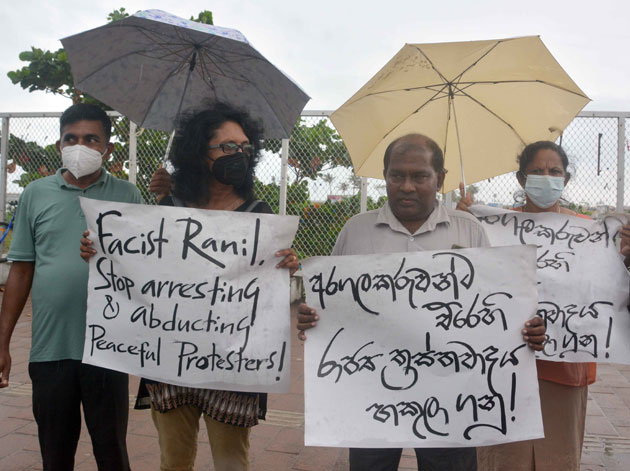 Facist Ranil,
Stop arresting
& abducting
Peaceful Protesters!
අරගලකරුවන්ට
එරෙහි
රාජ්‍ය ත්‍රස්තවාදය
හකුලා ගනු!
එරෙහි
ගනු!